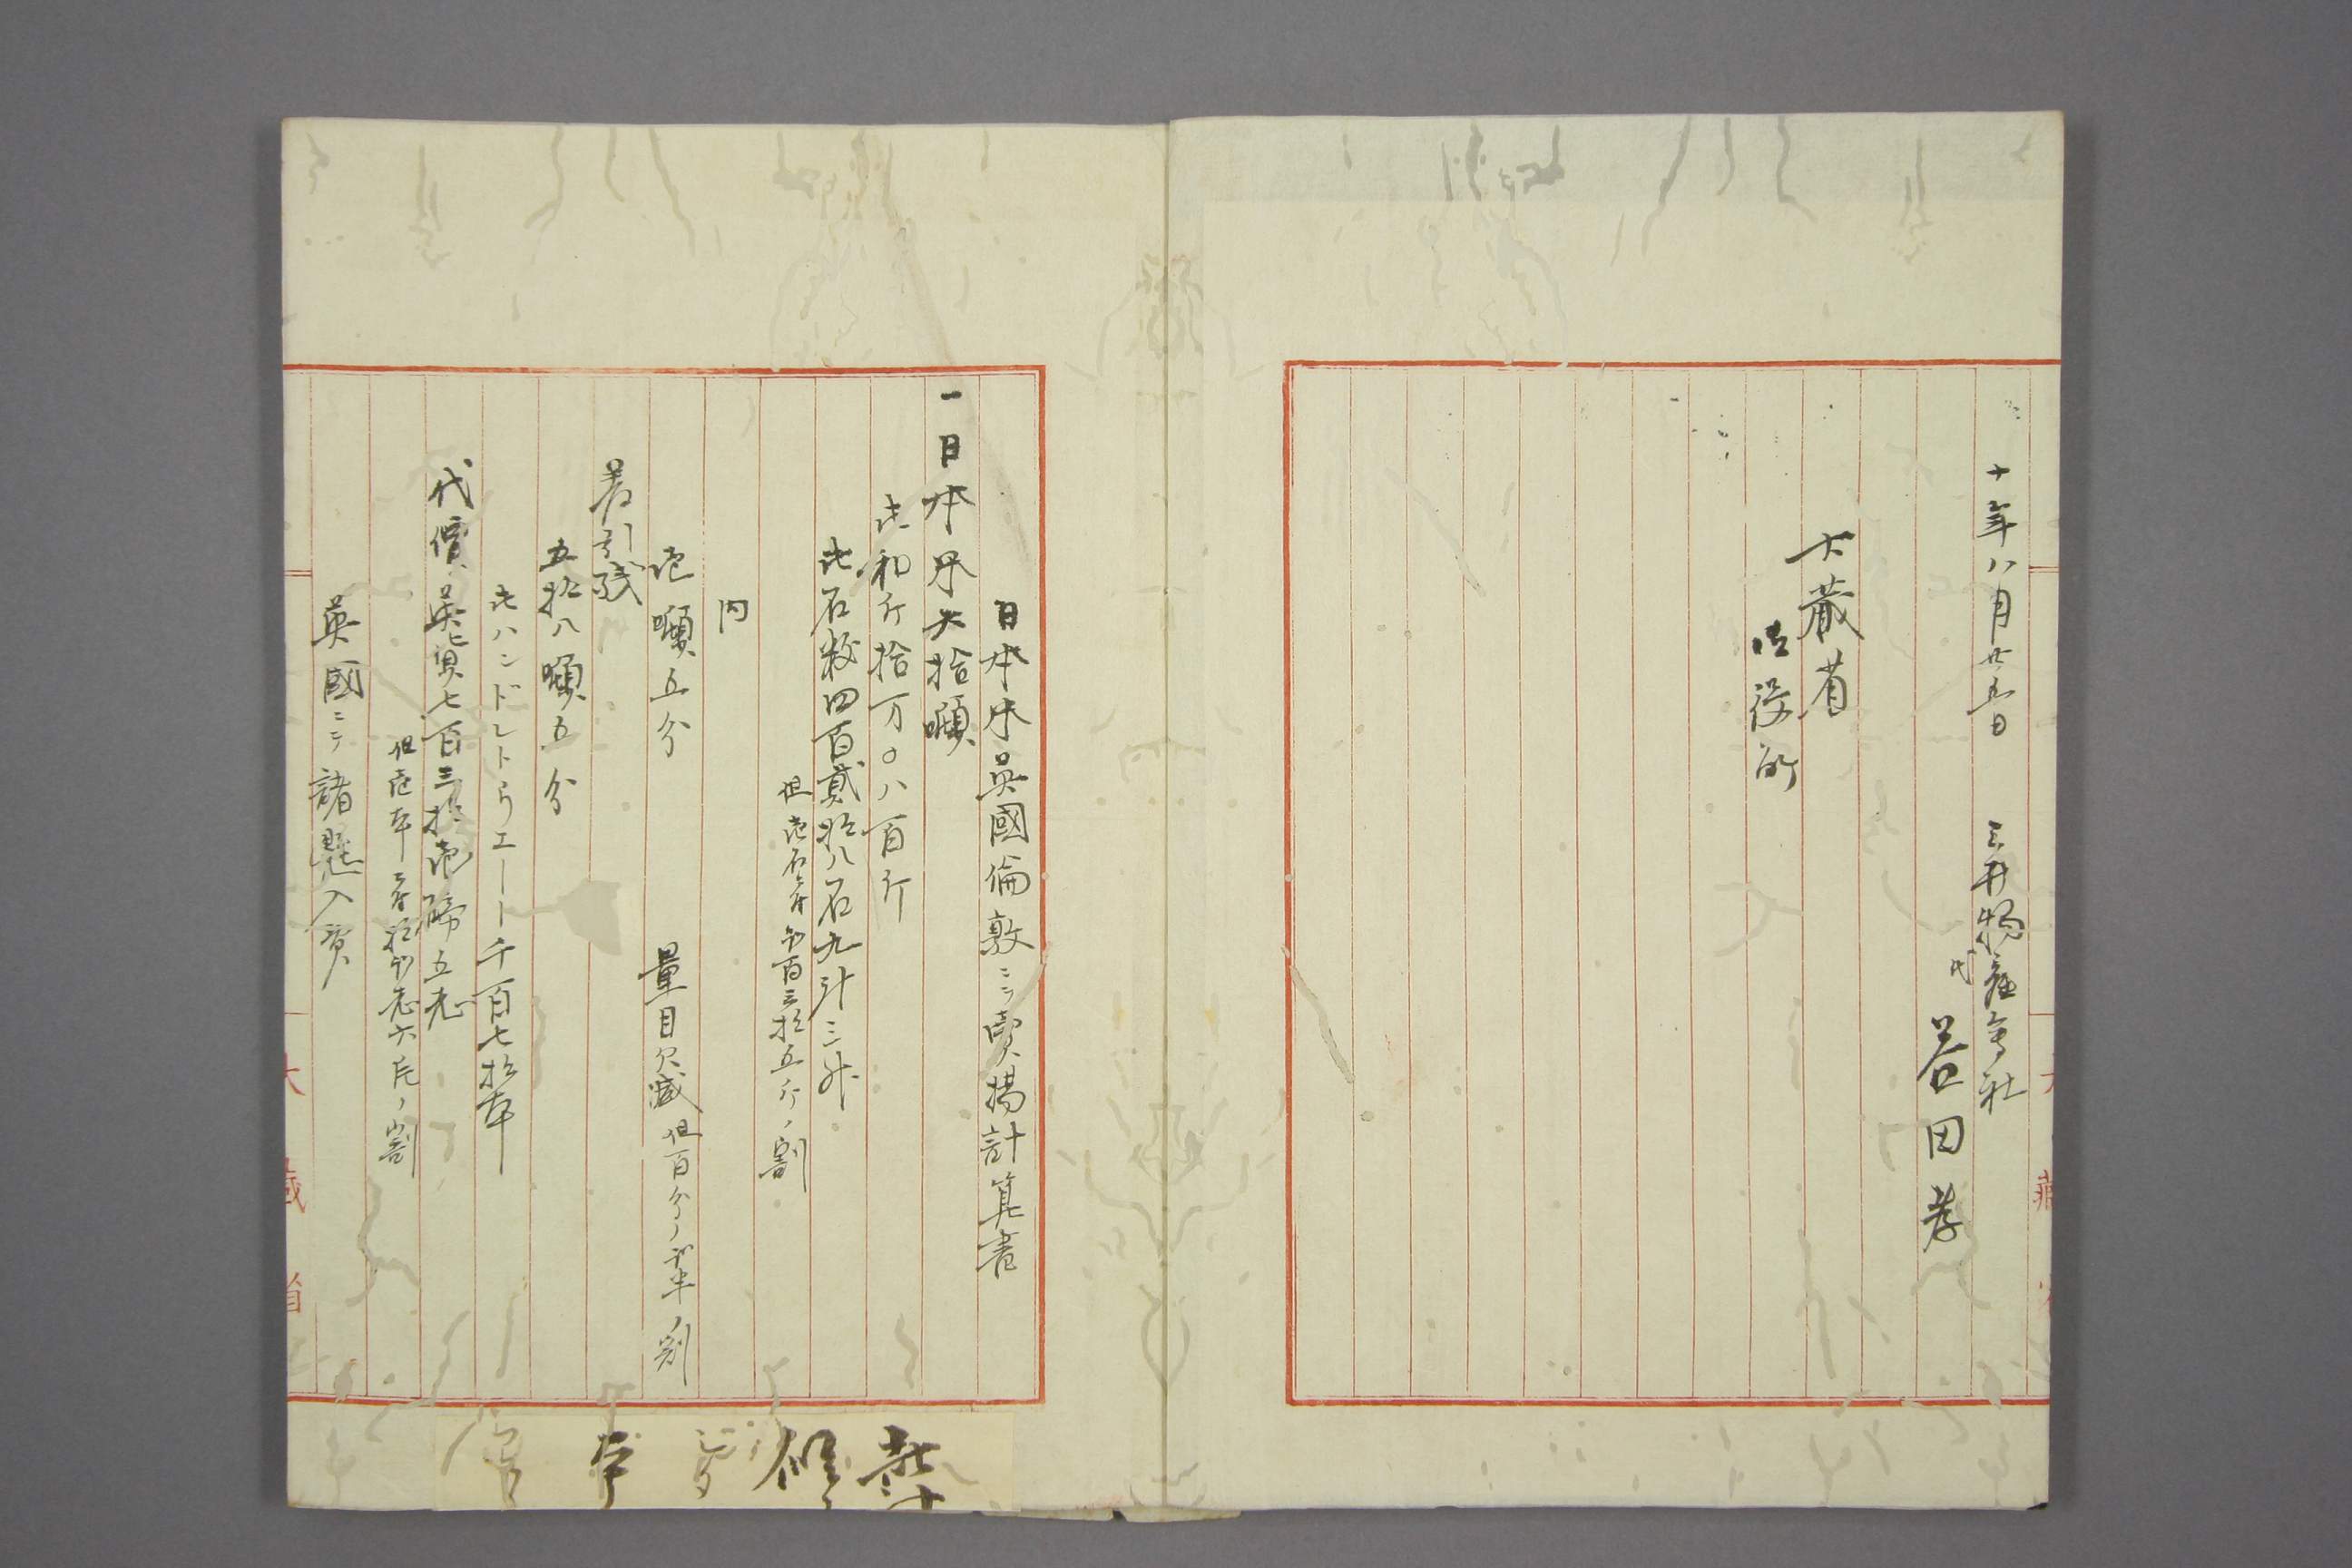 十年八月廿五日
三井物産會社
代
益田孝
大藏省
御役所
日本米英國倫敦ニテ賣揚計算書
一日本米六拾噸
此和斤拾万〇八百斤
此石数四百貳拾八石九斗三升
但壱石ニ付貳百三拾五斤ノ割
内
壱噸五分
量目欠減但百分ノ貳半ノ割
差引残
五拾八噸五分
此ハンドレトウエート千百七拾本
代價英貨七百三拾壱磅五志
但壱本ニ付拾貳志六片ノ割
英國ニテ諸懸入費
大藏省